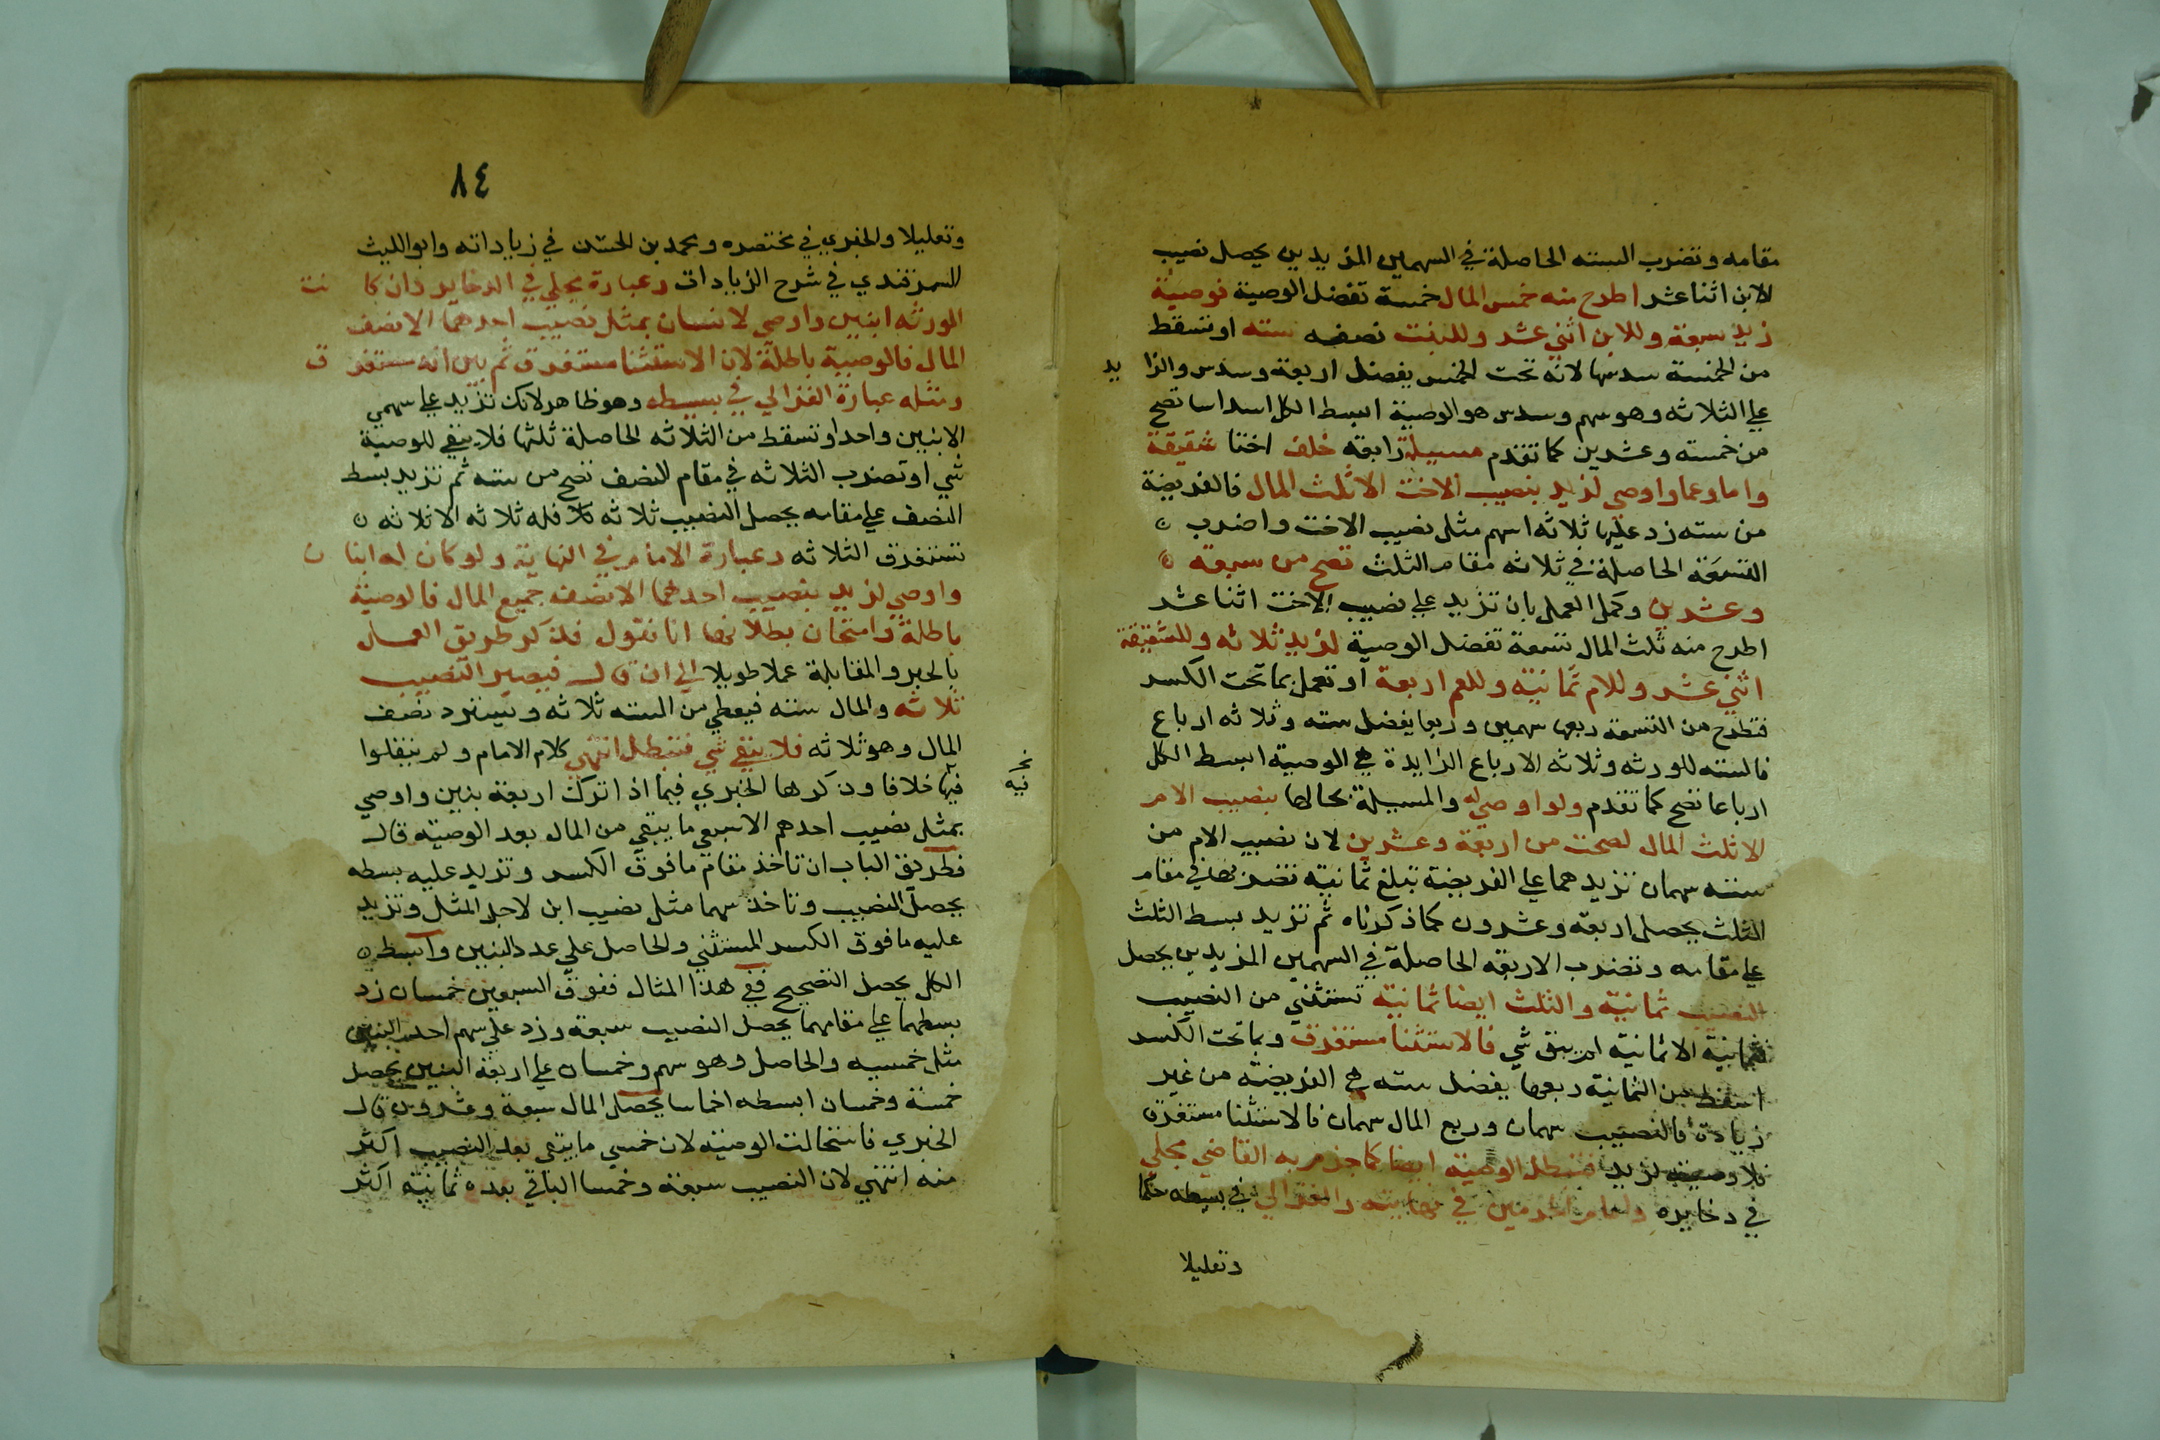 مقامه وتضرب السته الحاصلة في السهمين المزيدين يحصل نصيب
الابن اثنا عشر اطرح منه خمس المال خمسة تفضل الوصية فوصية
زيد سبعة وللابن اثني عشر وللبنت نصفه سته او تسقط
من الخمسة سدسها لانه تحت الخمس يفضل اربعة وسدس والزايد
علي الثلاثه وهو سهم وسدس هو الوصية ابسط الكل اسداسا تصح
من خمسته وعشرين كما تقدم مسيلة رابعه خلف اختا شقيقة
واما وعما واوصي لزيد بنصيب الاخت الا ثلث المال فالفريضة
من سته زد عليها ثلاثه اسهم مثل نصيب الاخت واضرب
التسعة الحاصلة في ثلاثه مقام الثلث تصح من سبعة
وعشرين وكمل العمل بان تزيد علي نصيب الاخت اثنا عشر
اطرح منه ثلث المال تسعة تفضل الوصية لزيد ثلاثه وللشقيقة
اثني عشر وللام ثمانية وللعم اربعة او تعمل بما تحت الكسر
فتطرح من التسعة ربعها سهمين وربعا يفضل سته وثلاثه ارباع
فالسته للورثه وثلاثه الارباع الزايدة هي الوصية ابسط الكل
ارباعا تصح كما تقدم ولو اوصي له والمسيلة بحالها بنصيب الام
الا ثلث المال لصحت من اربعة وعشرين لان نصيب الام من
سته سهمان تزيدهما علي الفريضة تبلغ ثمانية تضربها في مقام
الثلث يحصل اربعة وعشرون كما ذكرناه ثم تزيد بسط الثلث
علي مقامه وتضرب الاربعه الحاصلة في السهمين المزيدين يحصل
النصيب ثمانية والثلث ايضا ثمانية تستثني من النصيب
ثمانية الا ثمانية لم يبق شي فالاستثنا مستغرق وبما تحت الكسر
اسقط من الثمانية ربعها يفضل سته هي الفريضة من غير
زيادة فالنصيب سهمان وربع المال سهمان فالاستثنا مستغرق
فلا وصية لزيد فتبطل الوصية ايضا كما جزم به القاضي مجلي
في ذخايره وامام الحرمين في نهايته والغزالي في بسيطه حكما
وتعليلا
٨٤
وتعليلا والخبري في مختصره ومحمد بن الحسن في زياداته وابو الليث
السمرقندي في شرح الزيادات وعبارة مجلي في الدخاير وان كانت
الورثه ابنين واوصي لانسان بمثل نصيب احدهما الا نصف
المال فالوصية باطلة لان الاستثنا مستغرق ثم بين انه مستغرق
ومثله عبارة الغزالي في بسيطه وهو ظاهر لانك تزيد علي سهمي
الابنين واحدا وتسقط من الثلاثه الحاصلة ثلثها فلا يبقي للوصية
شي او تضرب الثلاثه في مقام النصف تصح من سته ثم تزيد بسط
النصف علي مقامه يحصل النصيب ثلاثه فله ثلاثه الا ثلاثه
تستغرق الثلاثه وعبارة الامام في النهاية ولو كان له ابنان
واوصي لزيد بنصيب احدهما الا نصف جميع المال فالوصية
باطلة وامتحان بطلانها انا نقول فذكر طريق العمل
بالجبر والمقابلة عملا طويلا الي ان قال فيصير النصيب
ثلاثه والمال سته فيعطي من السته ثلاثه ويسترد نصف
المال وهو ثلاثه فلا يبقي شي فتبطل انتهي كلام الامام ولم ينقلوا
فيها خلافا وذكرها الخبري فيما اذا ترك اربعة بنين واوصي
بمثل نصيب احدهم الا سبعي ما يبقي من المال بعد الوصية قال
فطريق الباب ان تاخذ مقام ما فوق الكسر وتزيد عليه بسطه
يحصل النصيب وتاخذ سهما مثل نصيب ابن لاجل المثل وتزيد
عليه ما فوق الكسر المستثني والحاصل علي عدد البنين وابسط
الكل يحصل التصحيح ففي هذا المثال ففوق السبعين خمسان زد
بسطهما علي مقامهما يحصل النصيب سبعة وزد علي سهم احد البنين
مثل خمسيه والحاصل وهو سهم وخمسان علي اربعة البنين يحصل
خمسة وخمسان ابسطه اخماسا يحصل المال سبعة وعشرون قال
الخبري فاستحالت الوصية لان خمسي ما يبقي بعد النصيب اكثر
منه انتهي لان النصيب سبعة وخمسا الباقي بعده ثمانية اكثر